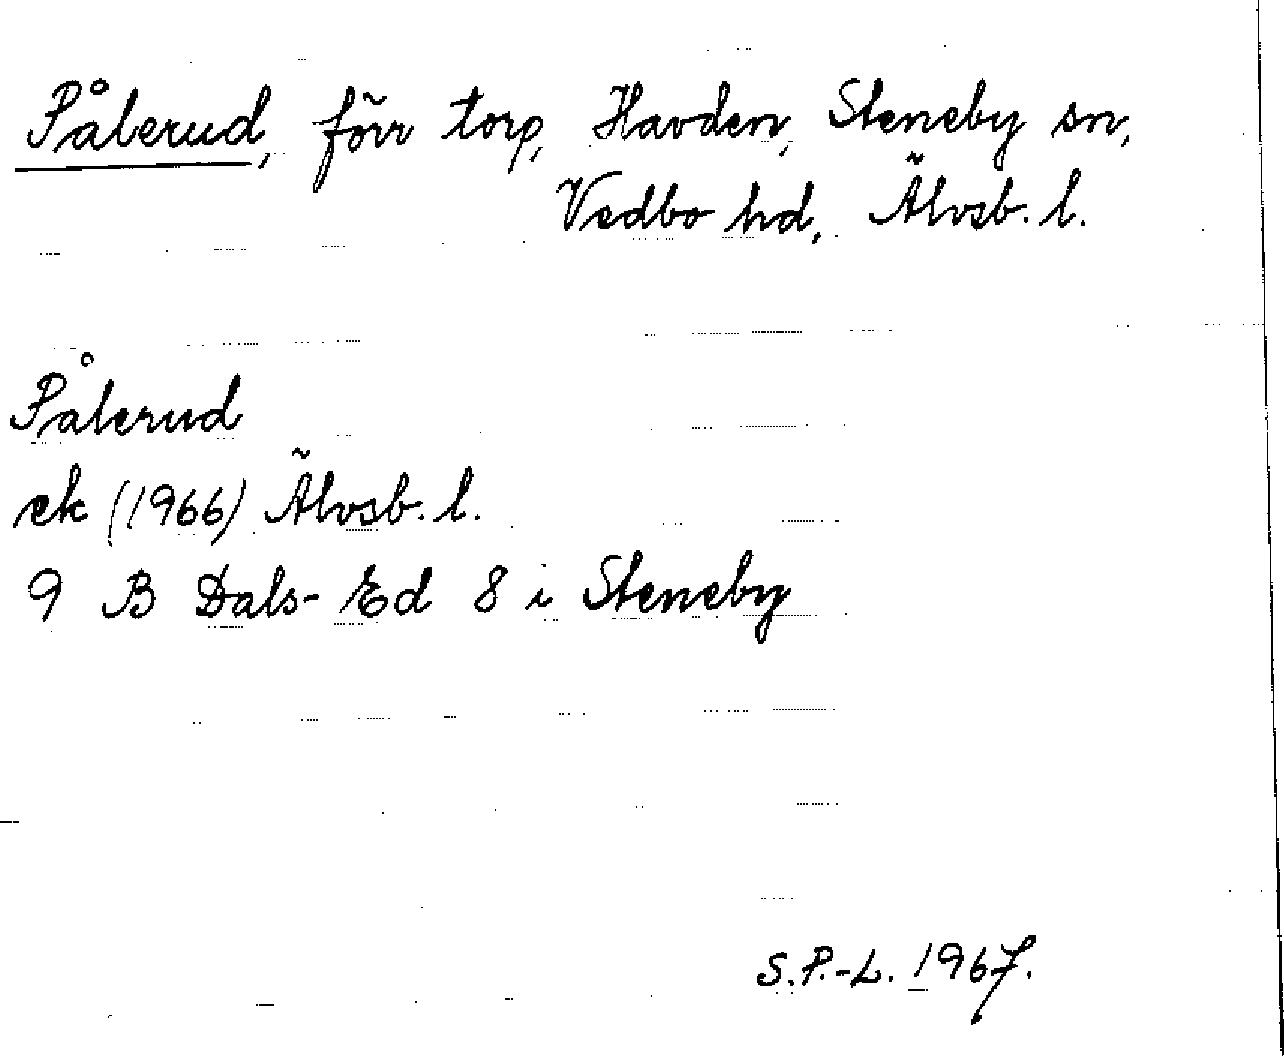 Pålerud, förr torp, Havden, Steneby sn,
Vedbo hd, Älvsb. l.
Pålerud
ek (1966) Älvsb. l.
9 B Dals-Ed 8 i Steneby
S.P.-L. 1967.